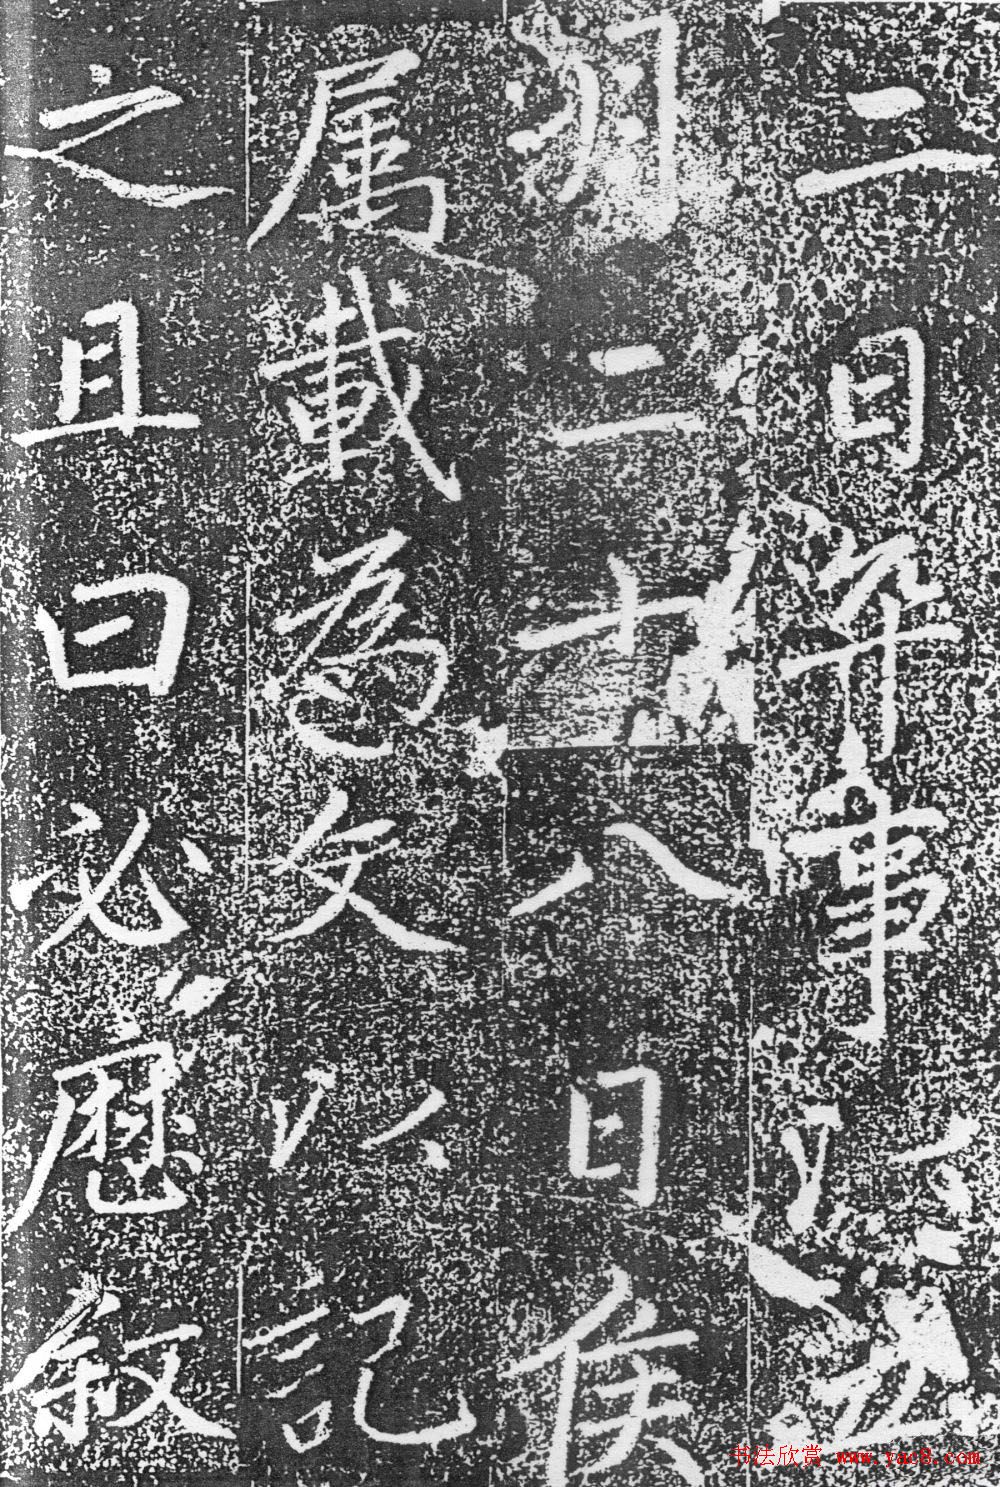 二日卒事以
二十八日侯
属載為文以記
之且曰必歷敘
书法欣赏 www.yac8.com